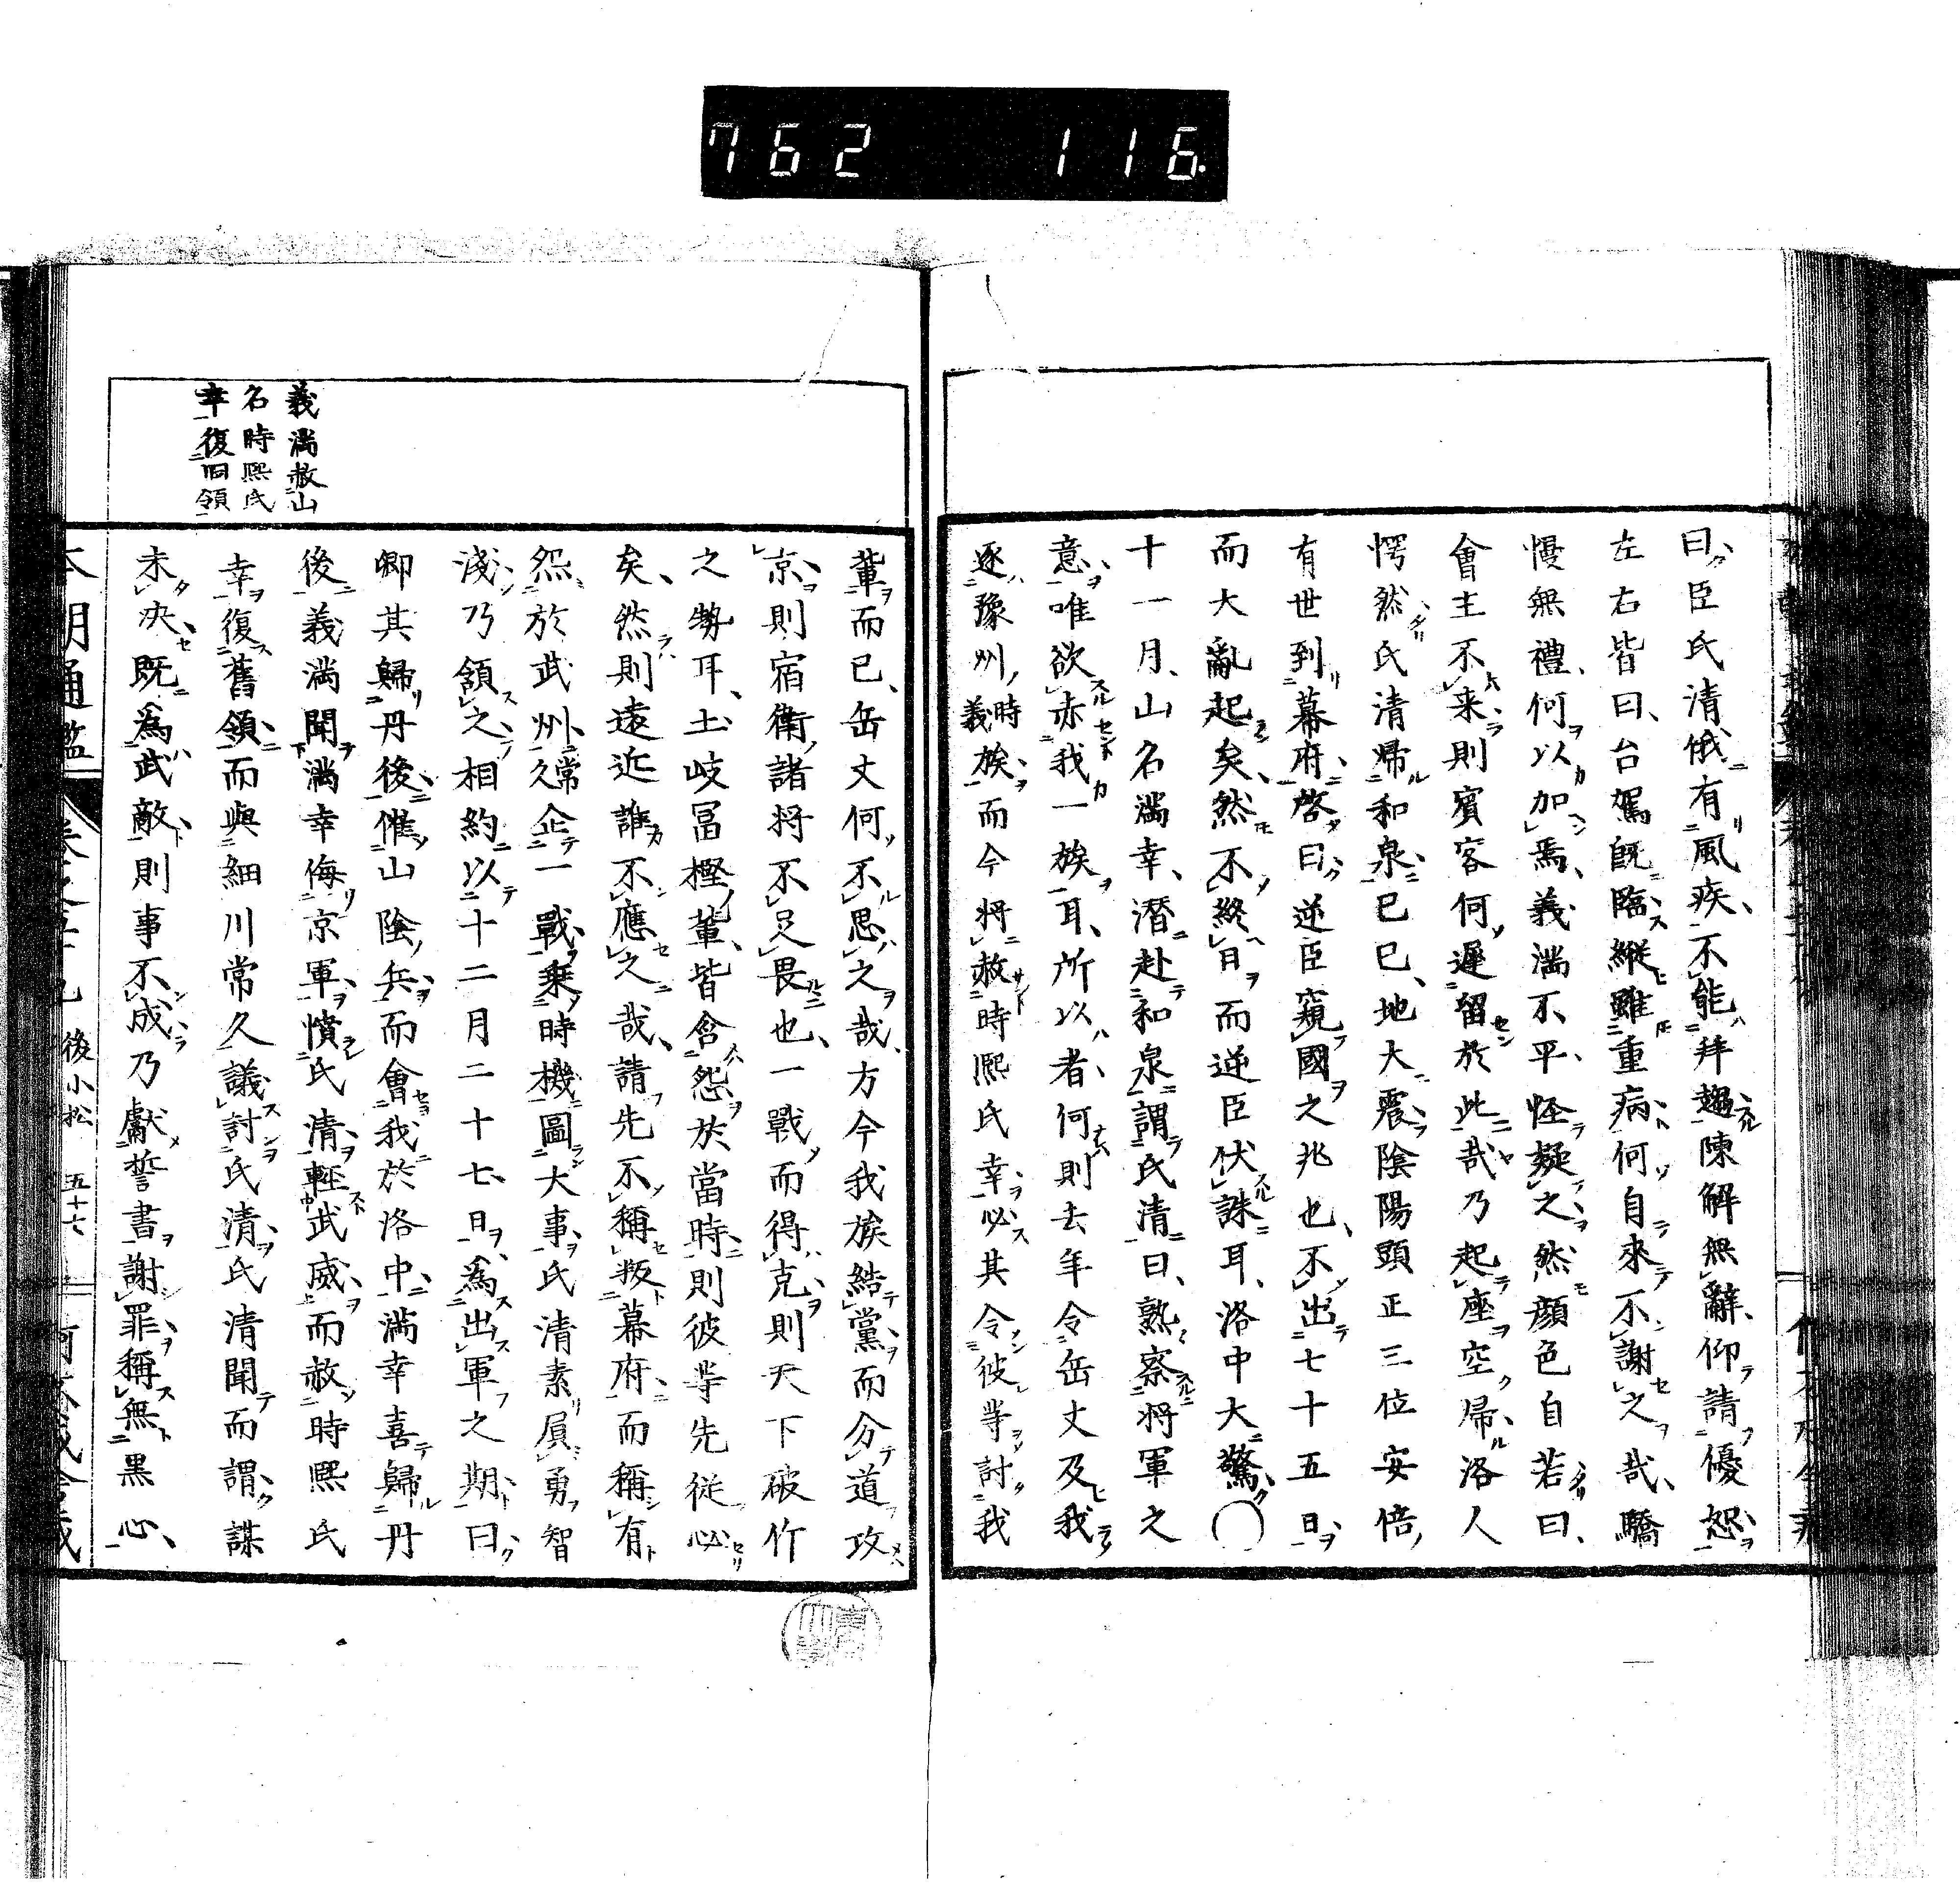 762 116
曰臣氏清俄有風疾不能拜趨陳解無辭仰請優恕
左右皆曰台駕既臨縱雖重病何自來不謝之哉驕
慢無禮何以加焉義滿不平怪疑之然顏色自若曰
會主不来則賓客何遲留於此哉乃起座空帰洛人
愕然氏清帰和泉已巳地大震陰陽頭正三位安倍
有世到幕府啓曰逆臣窺國之兆也不出七十五日
而大亂起矣然不終日而逆臣伏誅耳洛中大驚○
十一月山名滿幸潛赴和泉謂氏清曰熟察将軍之
意唯欲赤我一族耳所以者何則去年令岳丈及我
逐豫州時義族而今将赦時熈氏幸必其令彼等討我
義滿赦山
名時熈氏
幸復旧領
輩而已岳丈何不思之哉方今我族結黨而分道攻
京則宿衛諸将不足畏也一戰而得克則天下破竹
之勢耳土岐冨樫輩皆含怨於當時則彼等先従必
矣然則遠近誰不應之哉請先不稱叛幕府而稱有
怨於武州常久企一戰乗時機圖大事氏清素屓勇智
淺乃領之相約以十二月二十七日為出軍之期曰
卿其歸丹後催山陰兵而會我於洛中滿幸喜歸丹
後義滿聞滿幸侮京軍憤氏清輕武威而赦時熈氏
幸復舊領而與細川常久議討氏清氏清聞而謂謀
未决既為武敵則事不成乃獻誓書謝罪稱無黒心
本朝通鑑 後小松 五十六